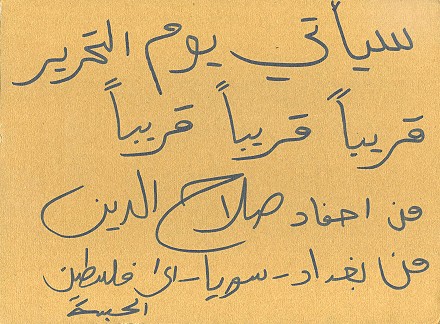 سيأتي يوم التحرير
قريباً قريباً قريباً
من احفاد صلاح الدين
من بغداد - سوريا - الى فلسطين
الحبيبة